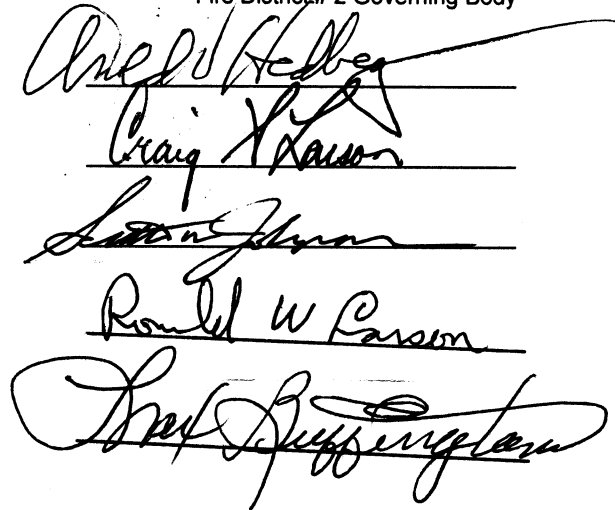 Fire District# 2 Governing Body
Hedberg
Craig Larson
Johnson
Ronald W Larson
Buffington